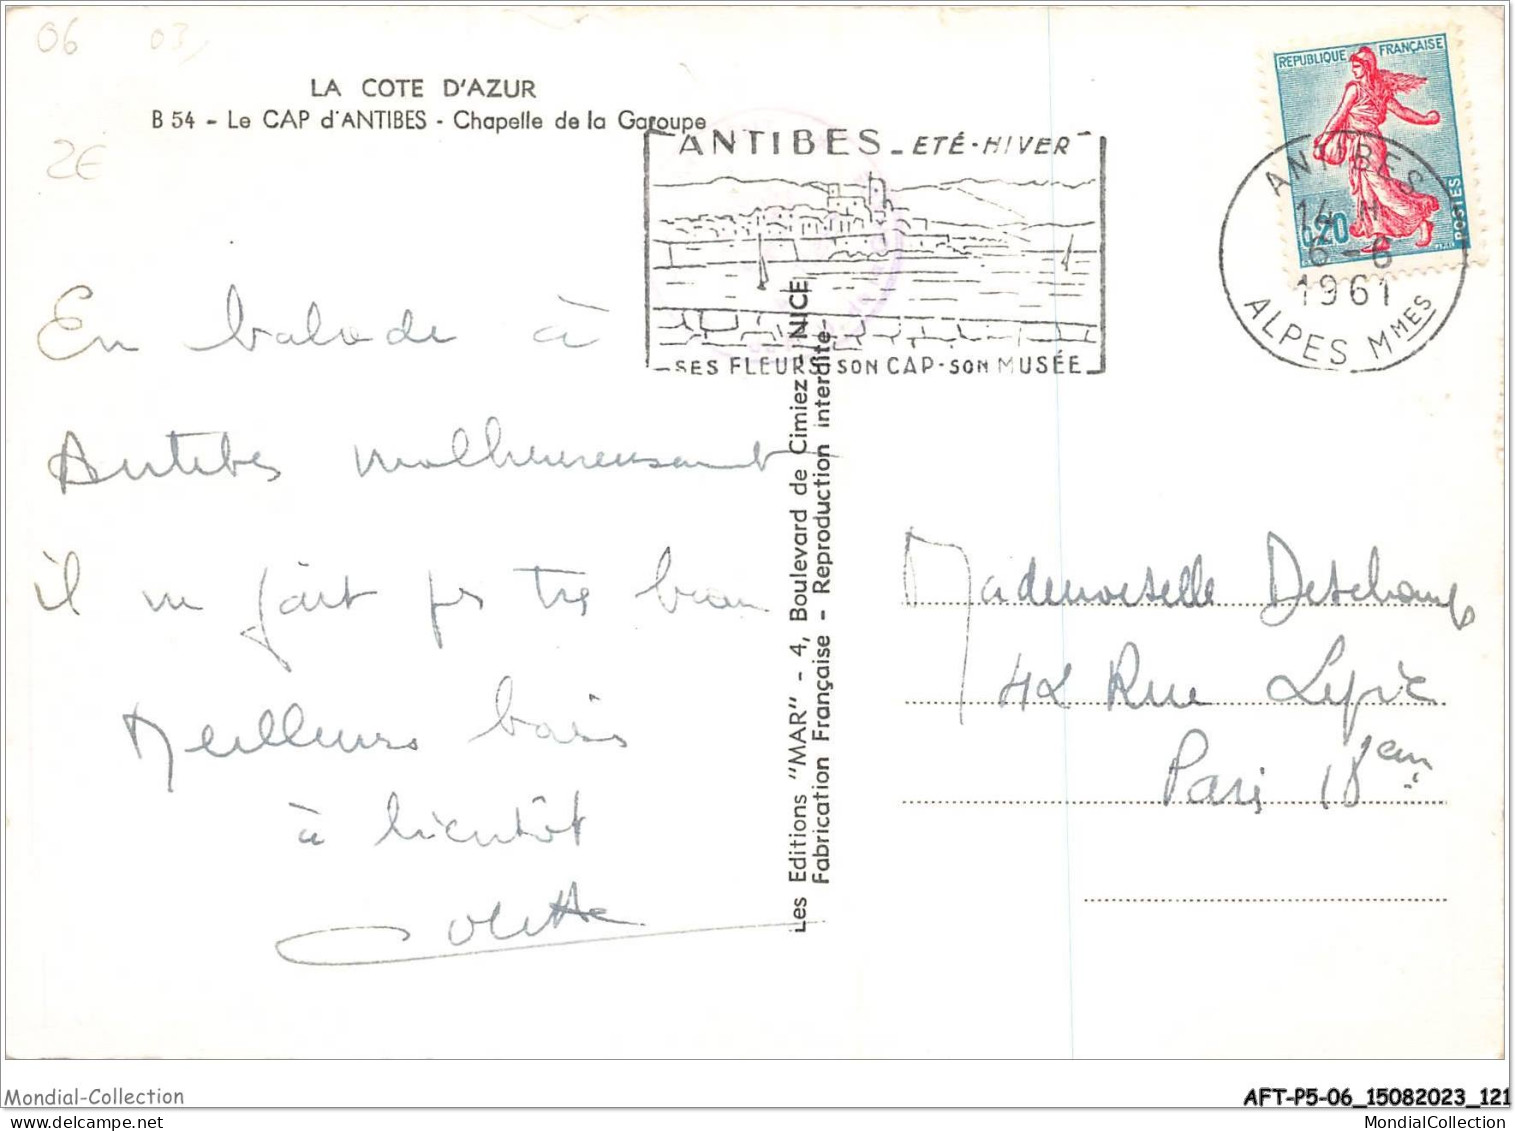 06 03
LA COTE D'AZUR
B 54 - Le CAP d'ANTIBES - Chapelle de la Garoupe
2€
ANTIBES - ETÉ - HIVER
SES FLEURS SON CAP - SON MUSÉE
REPUBLIQUE FRANÇAISE
0,20
POSTES
ANTIBES
14 H
6 - 6
1961
ALPES MMES
En balade à
Antibes malheureusement
il ne fait pas très beau
Meilleurs bais
à bientôt
Colette
Les Editions "MAR" - 4, Boulevard de Cimiez - NICE
Fabrication Française - Reproduction interdite
Mademoiselle Deschamps
42 Rue Lepic
Paris 18em
Mondial-Collection
AFT-P5-06_15082023_121
www.mondial-collection.com
MondialCollection